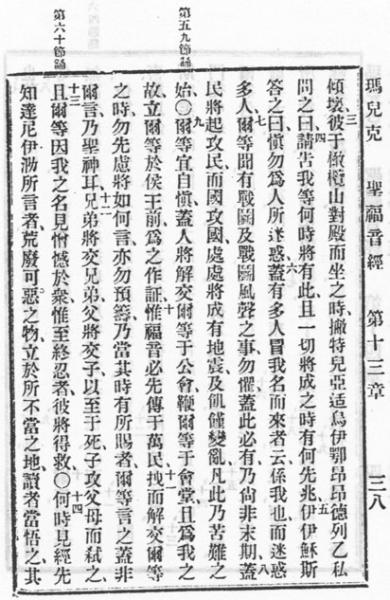 瑪兒克 聖福音經 第十三章 三八
第五九節誦
第六十節誦
傾壞三彼于橄欖山對殿而坐之時撇特兒亞适烏伊鄂昂昂德列乙私
問之曰四請告我等何時將有此且一切將成之時有何先兆五伊伊穌斯
答之曰愼勿爲人所迷惑六蓋有多人冒我名而來者云係我也而迷惑
多人七爾等聞有戰鬭及戰鬭風聲之事勿懼蓋此必有乃尙非末期八蓋
民將起攻民而國攻國處處將成有地震及飢饉變亂凡此乃苦難之
始○九爾等宜自愼蓋人將解交爾等于公會鞭爾等于會堂且爲我之
故立爾等於侯王前爲之作証十惟福音必先傳于萬民十一拽而解交爾等
之時勿先慮將如何言亦勿預籌乃當其時有所賜者爾等言之蓋非
爾言乃聖神耳十二兄弟將交兄弟父將交子以至于死子攻父母而弑之
十三且爾等因我之名見憎憾於衆惟至終忍者彼將得救○十四何時見經先
知達尼伊泐所言者荒廢可惡之物立於所不當之地讀者當悟之其